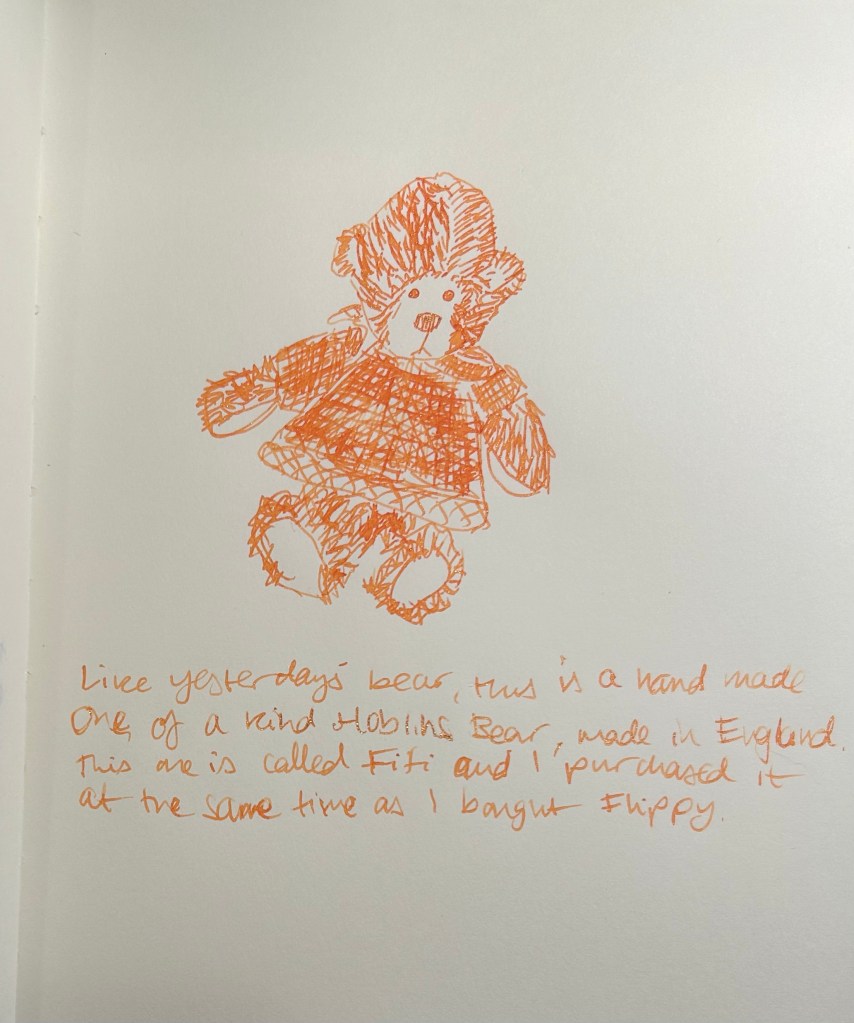 Like yesterday's bear, this is a hand made
One of a kind Hoblins Bear, made in England.
This one is called Fifi and I purchased it
at the same time as I bought Flippy.